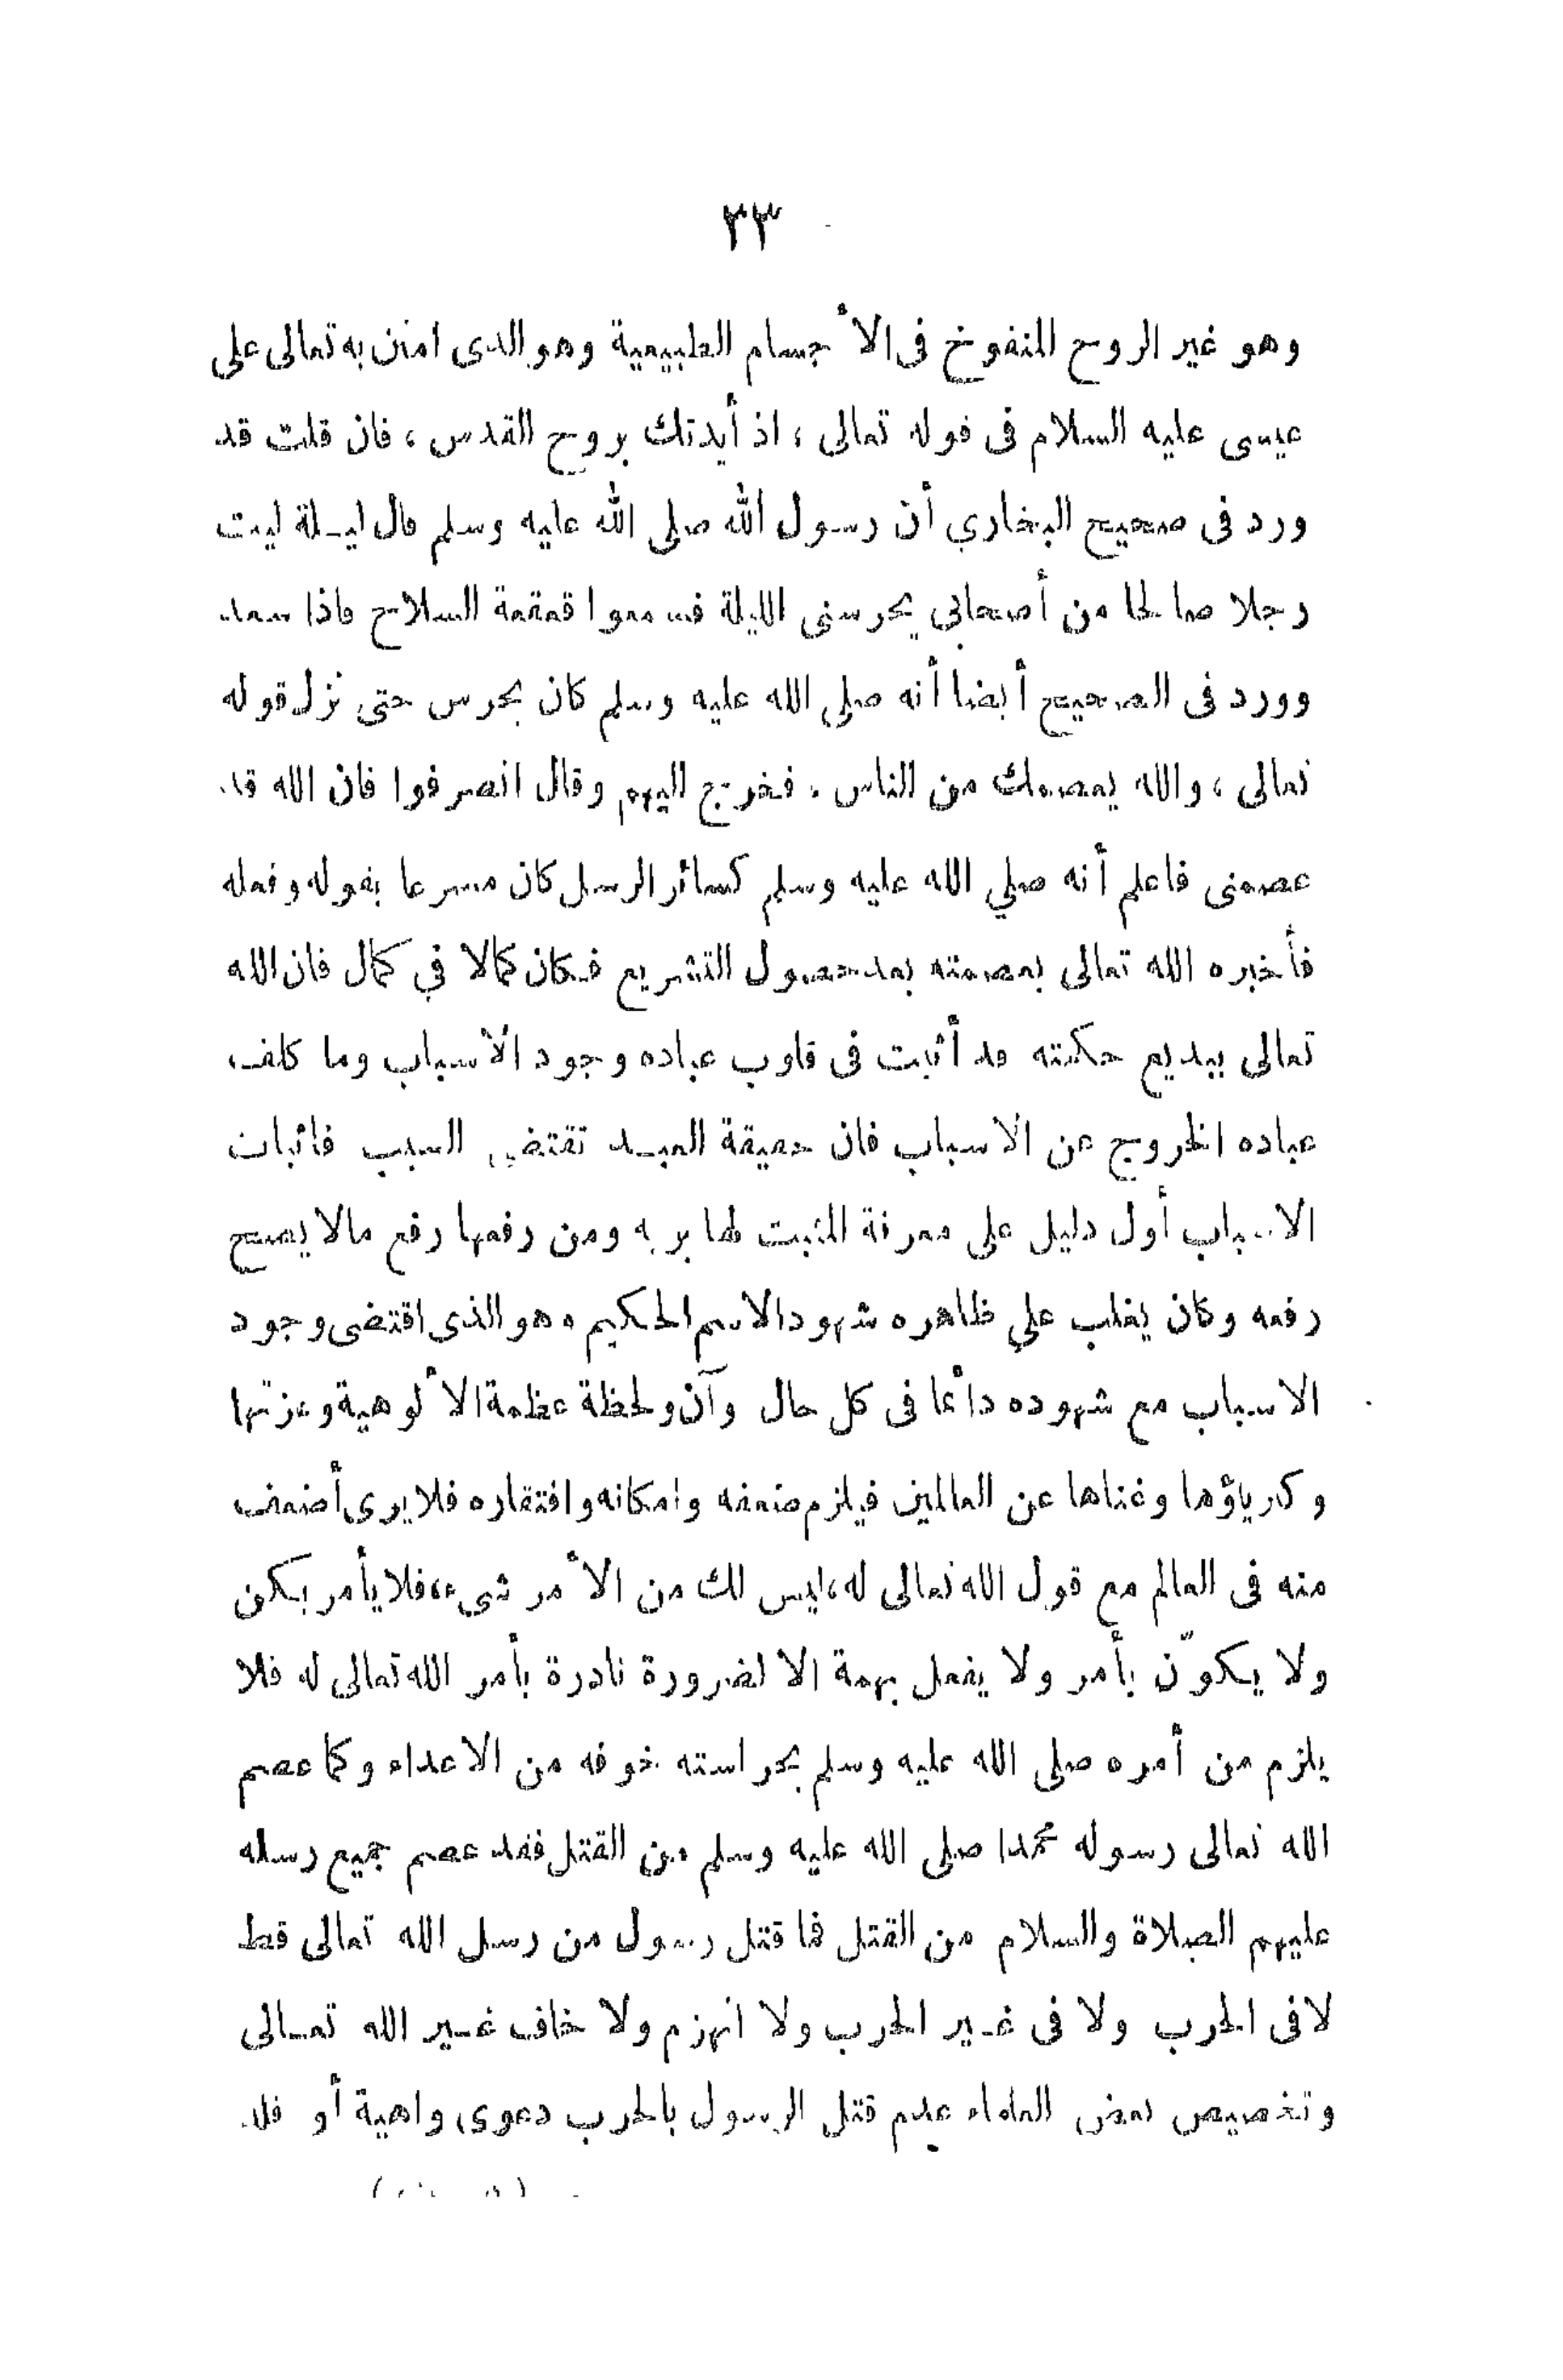 ٣٣
وهو غير الروح المنفوخ فى الأجسام الطبيعية وهو الذى امتن به تعالى على
عيسى عليه السلام فى قوله تعالى ، اذ أيدتك بروح القدس ، فان قلت قد
ورد فى صحيح البخاري أن رسول الله صلى الله عليه وسلم قال ليلة ليت
رجلا صالحا من أصحابى يحرسنى الليلة فسمعوا قعقعة السلاح فاذا سعد
وورد فى الصحيح أيضا أنه صلى الله عليه وسلم كان يحرس حتى نزل قوله
تعالى ، والله يعصمك من الناس ، فخرج اليهم وقال انصرفوا فان الله قد
عصمنى فاعلم أنه صلي الله عليه وسلم كسائر الرسل كان مشرعا بقوله وفعله
فأخبره الله تعالى بعصمته بعد حصول التشريع فكان كمالا في كمال فان الله
تعالى ببديع حكمته قد أثبت فى قلوب عباده وجود الأسباب وما كلف
عباده الخروج عن الاسباب فان حقيقة العبد تقتضى السبب فاثبات
الاسباب أول دليل على معرفة المثبت لها بربه ومن رفعها رفع مالا يصح
رفعه وكان يغلب علي ظاهره شهود الاسم الحكيم وهو الذى اقتضى وجود
الاسباب مع شهوده دائما فى كل حال وآن ولحظة عظمة الألوهية وعزتها
وكبرياؤها وغناها عن العالمين فيلزم ضعفه وامكانه وافتقاره فلا يرى أضعف
منه فى العالم مع قول الله تعالى له ، ليس لك من الأمر شىء ، فلا يأمر بكن
ولا يكوّن بأمر ولا يفعل بهمة الا لضرورة نادرة بأمر الله تعالى له فلا
يلزم من أمره صلى الله عليه وسلم بحراسته خوفه من الاعداء وكما عصم
الله تعالى رسوله محمدا صلى الله عليه وسلم من القتل فقد عصم جميع رسله
عليهم الصلاة والسلام من القتل فما قتل رسول من رسل الله تعالى قط
لا فى الحرب ولا فى غير الحرب ولا انهزم ولا خاف غير الله تعالى
وتخصيص بعض العلماء عدم قتل الرسول بالحرب دعوى واهية أو فلا